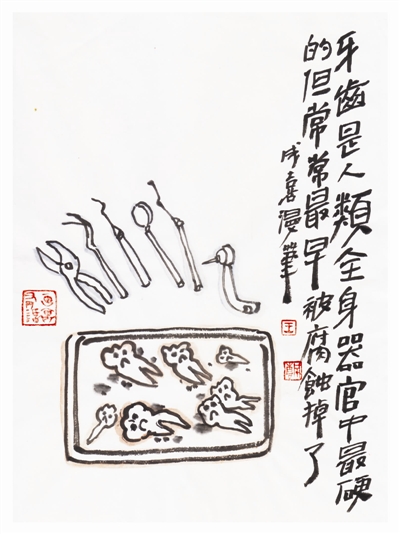 牙齒是人類全身器官中最硬
的但常常最早被腐蝕掉了
成喜漫筆
王